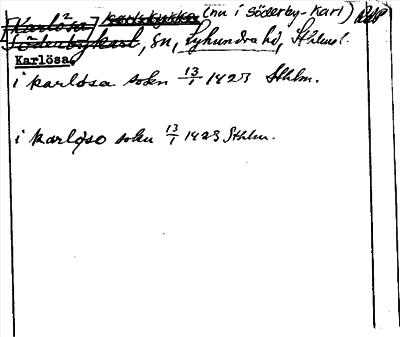 Karlösa (nu i Söderby-Karl)
Söderbykarl, sn, Lyhundra hd, Sthlms l.
Karlösa
i karlösa sokn 13/1 1423 Sthlm.
i karløso sokn 13/1 1423 Sthlm.